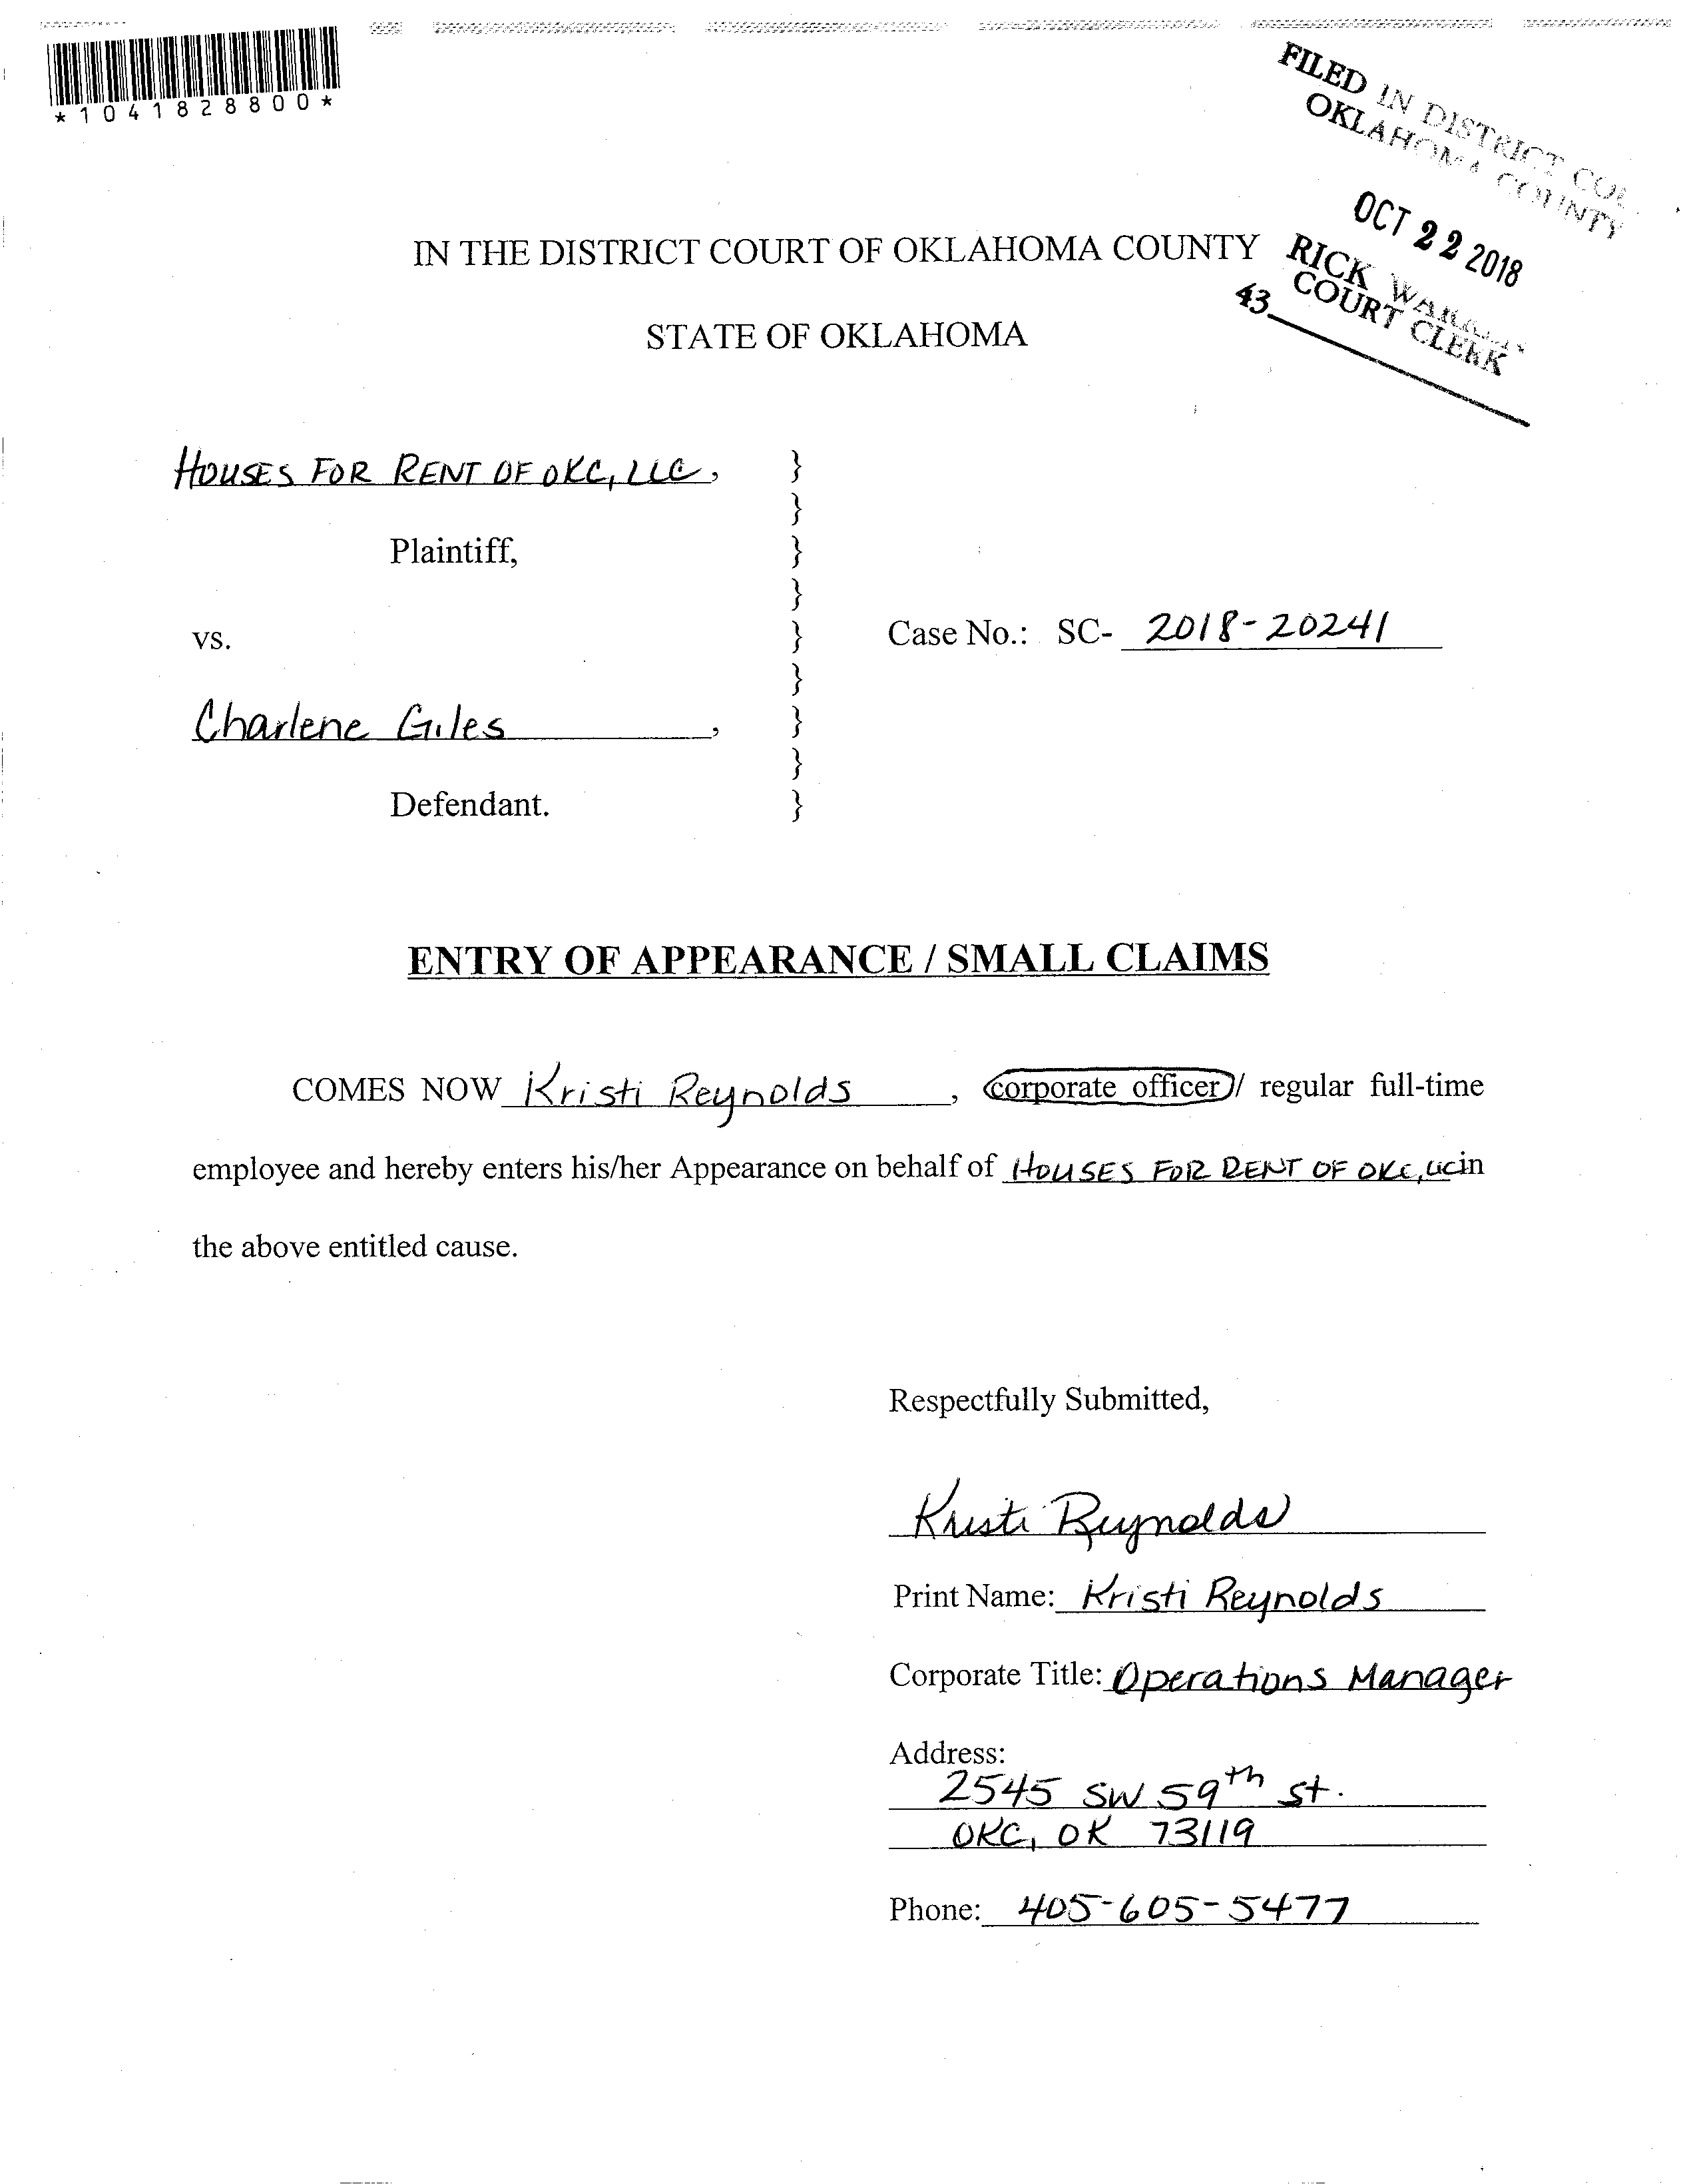 *1041828800*
FILED IN DISTRICT
OKLAHOMA COUNTY
OCT 22 2018
RICK
COURT CLERK
43
IN THE DISTRICT COURT OF OKLAHOMA COUNTY
STATE OF OKLAHOMA
HOUSES FOR RENT OF OKC, LLC, }
}
Plaintiff, }
}
vs. } Case No.: SC- 2018-20241
}
Charlene Giles, }
}
Defendant. }
ENTRY OF APPEARANCE / SMALL CLAIMS
COMES NOW Kristi Reynolds, corporate officer/ regular full-time
employee and hereby enters his/her Appearance on behalf of HOUSES FOR RENT OF OKC, LLC in
the above entitled cause.
Respectfully Submitted,
Kristi Reynolds
Print Name: Kristi Reynolds
Corporate Title: Operations Manager
Address:
2545 SW 59th St.
OKC, OK 73119
Phone: 405-605-5477